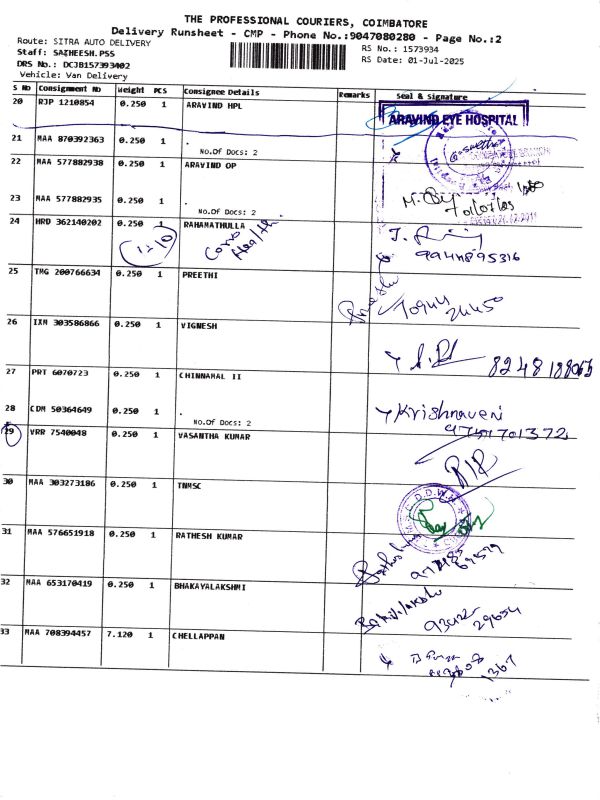 THE PROFESSIONAL COURIERS, COIMBATORE
Delivery Runsheet - CMP - Phone No.:9047080280 - Page No.:2
Route: SITRA AUTO DELIVERY
RS No.: 1573934
Staff: SATHEESH.PSS
RS Date: 01-Jul-2025
DRS No.: DCJB157393402
Vehicle: Van Delivery
S No Consignment No Weight PCS Consignee Details Remarks Seal & Signature
20 RJP 1210854 0.250 1 ARAVIND HPL
ARAVIND EYE HOSPITAL
21 MAA 870392363 0.250 1 .
No.Of Docs: 2
22 MAA 577882938 0.250 1 ARAVIND OP
23 MAA 577882935 0.250 1 .
No.Of Docs: 2
24 HRD 362140202 0.250 1 RAHAMATHULLA
9944895316
25 TMG 200766634 0.250 1 PREETHI
70944
24450
26 IXM 303586866 0.250 1 VIGNESH
27 PRT 6070723 0.250 1 CHINNAMAL II
28 CDM 50364649 0.250 1 .
No.Of Docs: 2
Krishnaveni
9751701372
29 VRR 7540048 0.250 1 VASANTHA KUMAR
30 MAA 303273186 0.250 1 TNMSC
31 MAA 576651918 0.250 1 RATHESH KUMAR
32 MAA 653170419 0.250 1 BHAKAYALAKSHMI
33 MAA 708394457 7.120 1 CHELLAPPAN